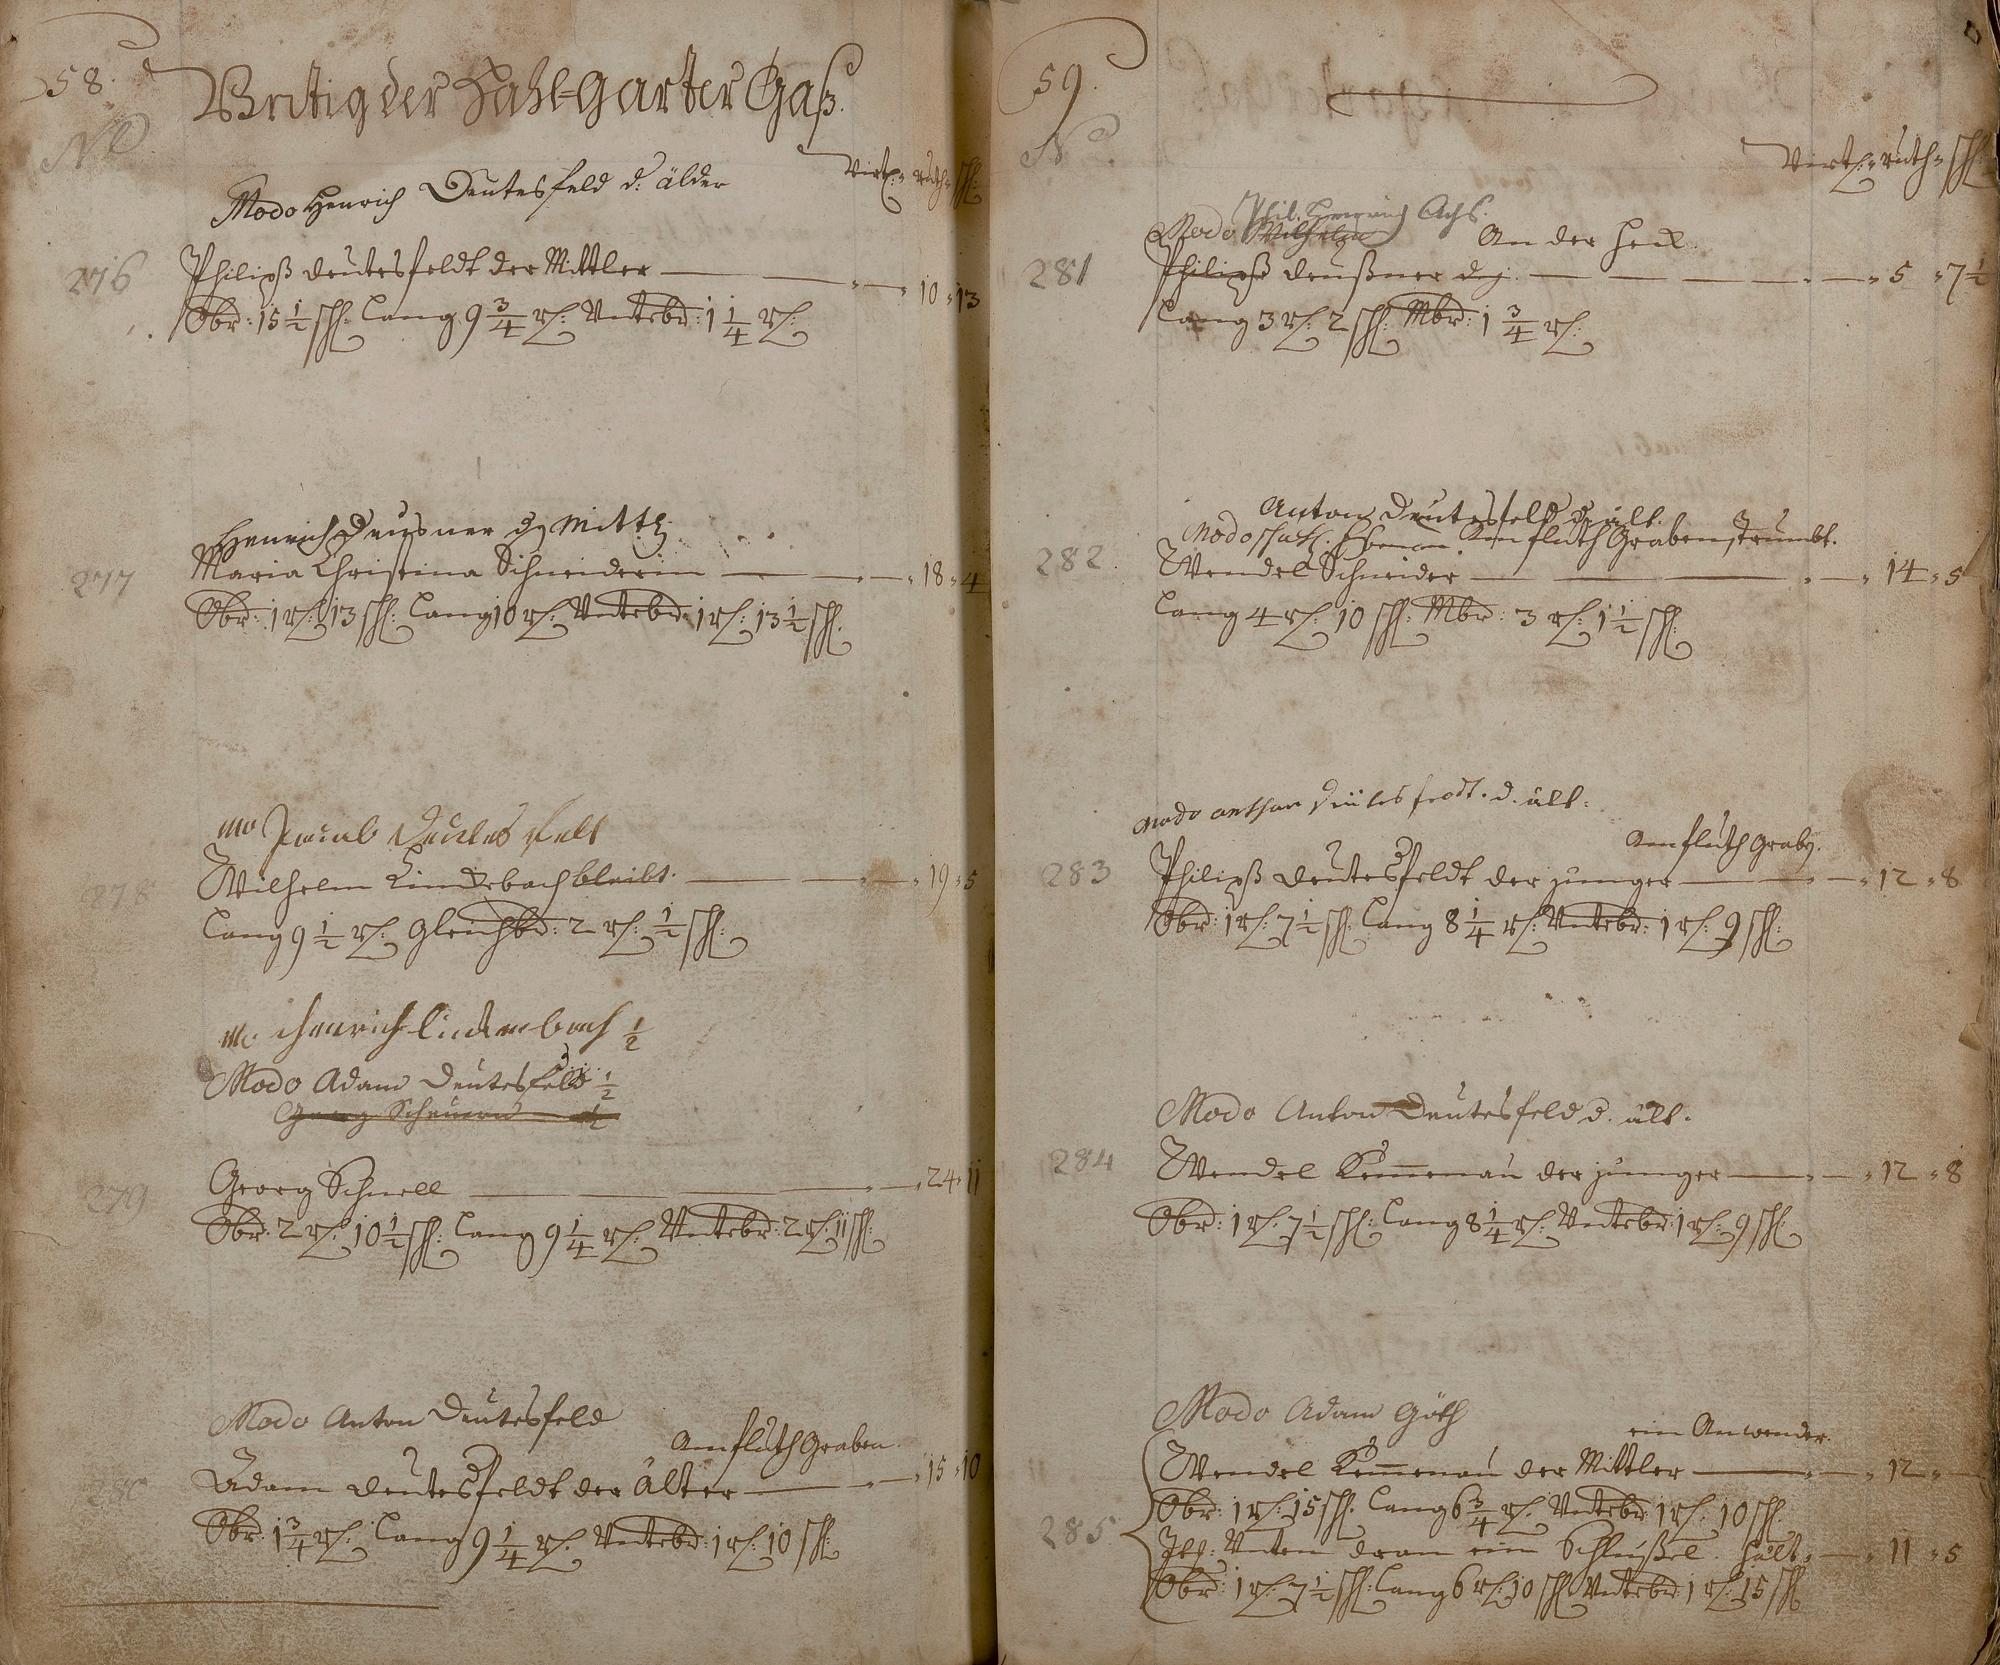 58.
Vntig der Hahl-Garter Gaß.
No
Virt: " ruth " sch:
Modo Henrich Deutesfeld d: älder
276 Philipß Deutesfeldt der Mittler — " — " 10 " 13
Obr: 15 1/2 sch: Lang 9 3/4 r: Vntebr: 1 1/4 r:
Henrich Deusner dz Mittl:
277 Maria Christina Schneiderin — " — " 18 " 4
Obr: 1 r: 13 sch: Lang 10 r: Vntebr: 1 r: 13 1/2 sch:
mo Jacab Deutes felt
278 Wilhelm Lindebach bleibt. — " — " 19 " 5
Lang 9 1/2 r: Gleichbr: 2 r: 1/2 sch:
mo Henrich Lindenbach 1/2
Modo Adam Deutesfeld 1/2
Georg Scheuern 1/2
279 Georg Schnell — " — " 24 " 11
Obr: 2 r: 10 1/2 sch: Lang 9 1/4 r: Vntebr: 2 r: 11 sch:
Modo Anton Deutesfeld
Am fluth Graben
280 Adam Deutesfeldt der Älter — " — " 15 " 10
Obr: 1 3/4 r: Lang 9 1/4 r: Vntebr: 1 r: 10 sch:
59.
No
Virt: " ruth " sch:
Phil. Henrich Achs.
Modo Wilhelm An der Heck
281 Philipß Deußner dj. — " — " 5 " 7 1/2
Lang 3 r: 2 sch: Mbr: 1 3/4 r:
Anton Deutesfeld d. ält.
Modo Am fluth Graben strumbt.
282. Wendel Schneider — " — " 14 " 5
Lang 4 r: 10 sch: Mbr: 3 r: 1 1/2 sch:
modo anthon Deutesfeldt. d. ält:
Am fluth Graben.
283 Philipß Deutesfeldt der junger — " — " 12 " 8
Obr: 1 r: 7 1/2 sch: Lang 8 1/4 r: Vntebr: 1 r: 9 sch:
Modo Anton Deutesfeld d. ält.
284 Wendel Kemenau der junger — " — " 12 " 8
Obr: 1 r: 7 1/2 sch: Lang 8 1/4 r: Vntebr: 1 r: 9 sch:
Modo Adam Göth
ein Anwender.
Wendel Kemenau der Mittler — " — " 12 " —
Obr: 1 r: 15 sch: Lang 6 3/4 r: Vntebr: 1 r: 10 sch:
285 Vnten dran ein Schlußel. hält " — " 11 " 5
Obr: 1 r: 7 1/2 sch: Lang 6 r: 10 sch Vntebr: 1 r: 15 sch